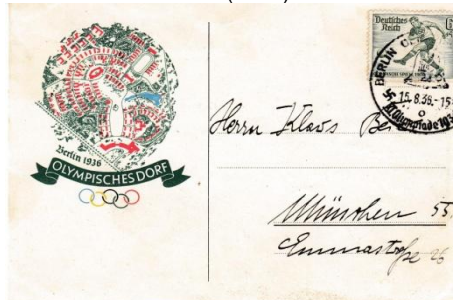 Berlin 1936
OLYMPISCHES DORF
Deutsches
Reich
6
BERLIN
15.8.36.-15
Olympiade 193
Herrn Klaus
München 55
Emmastraße 26